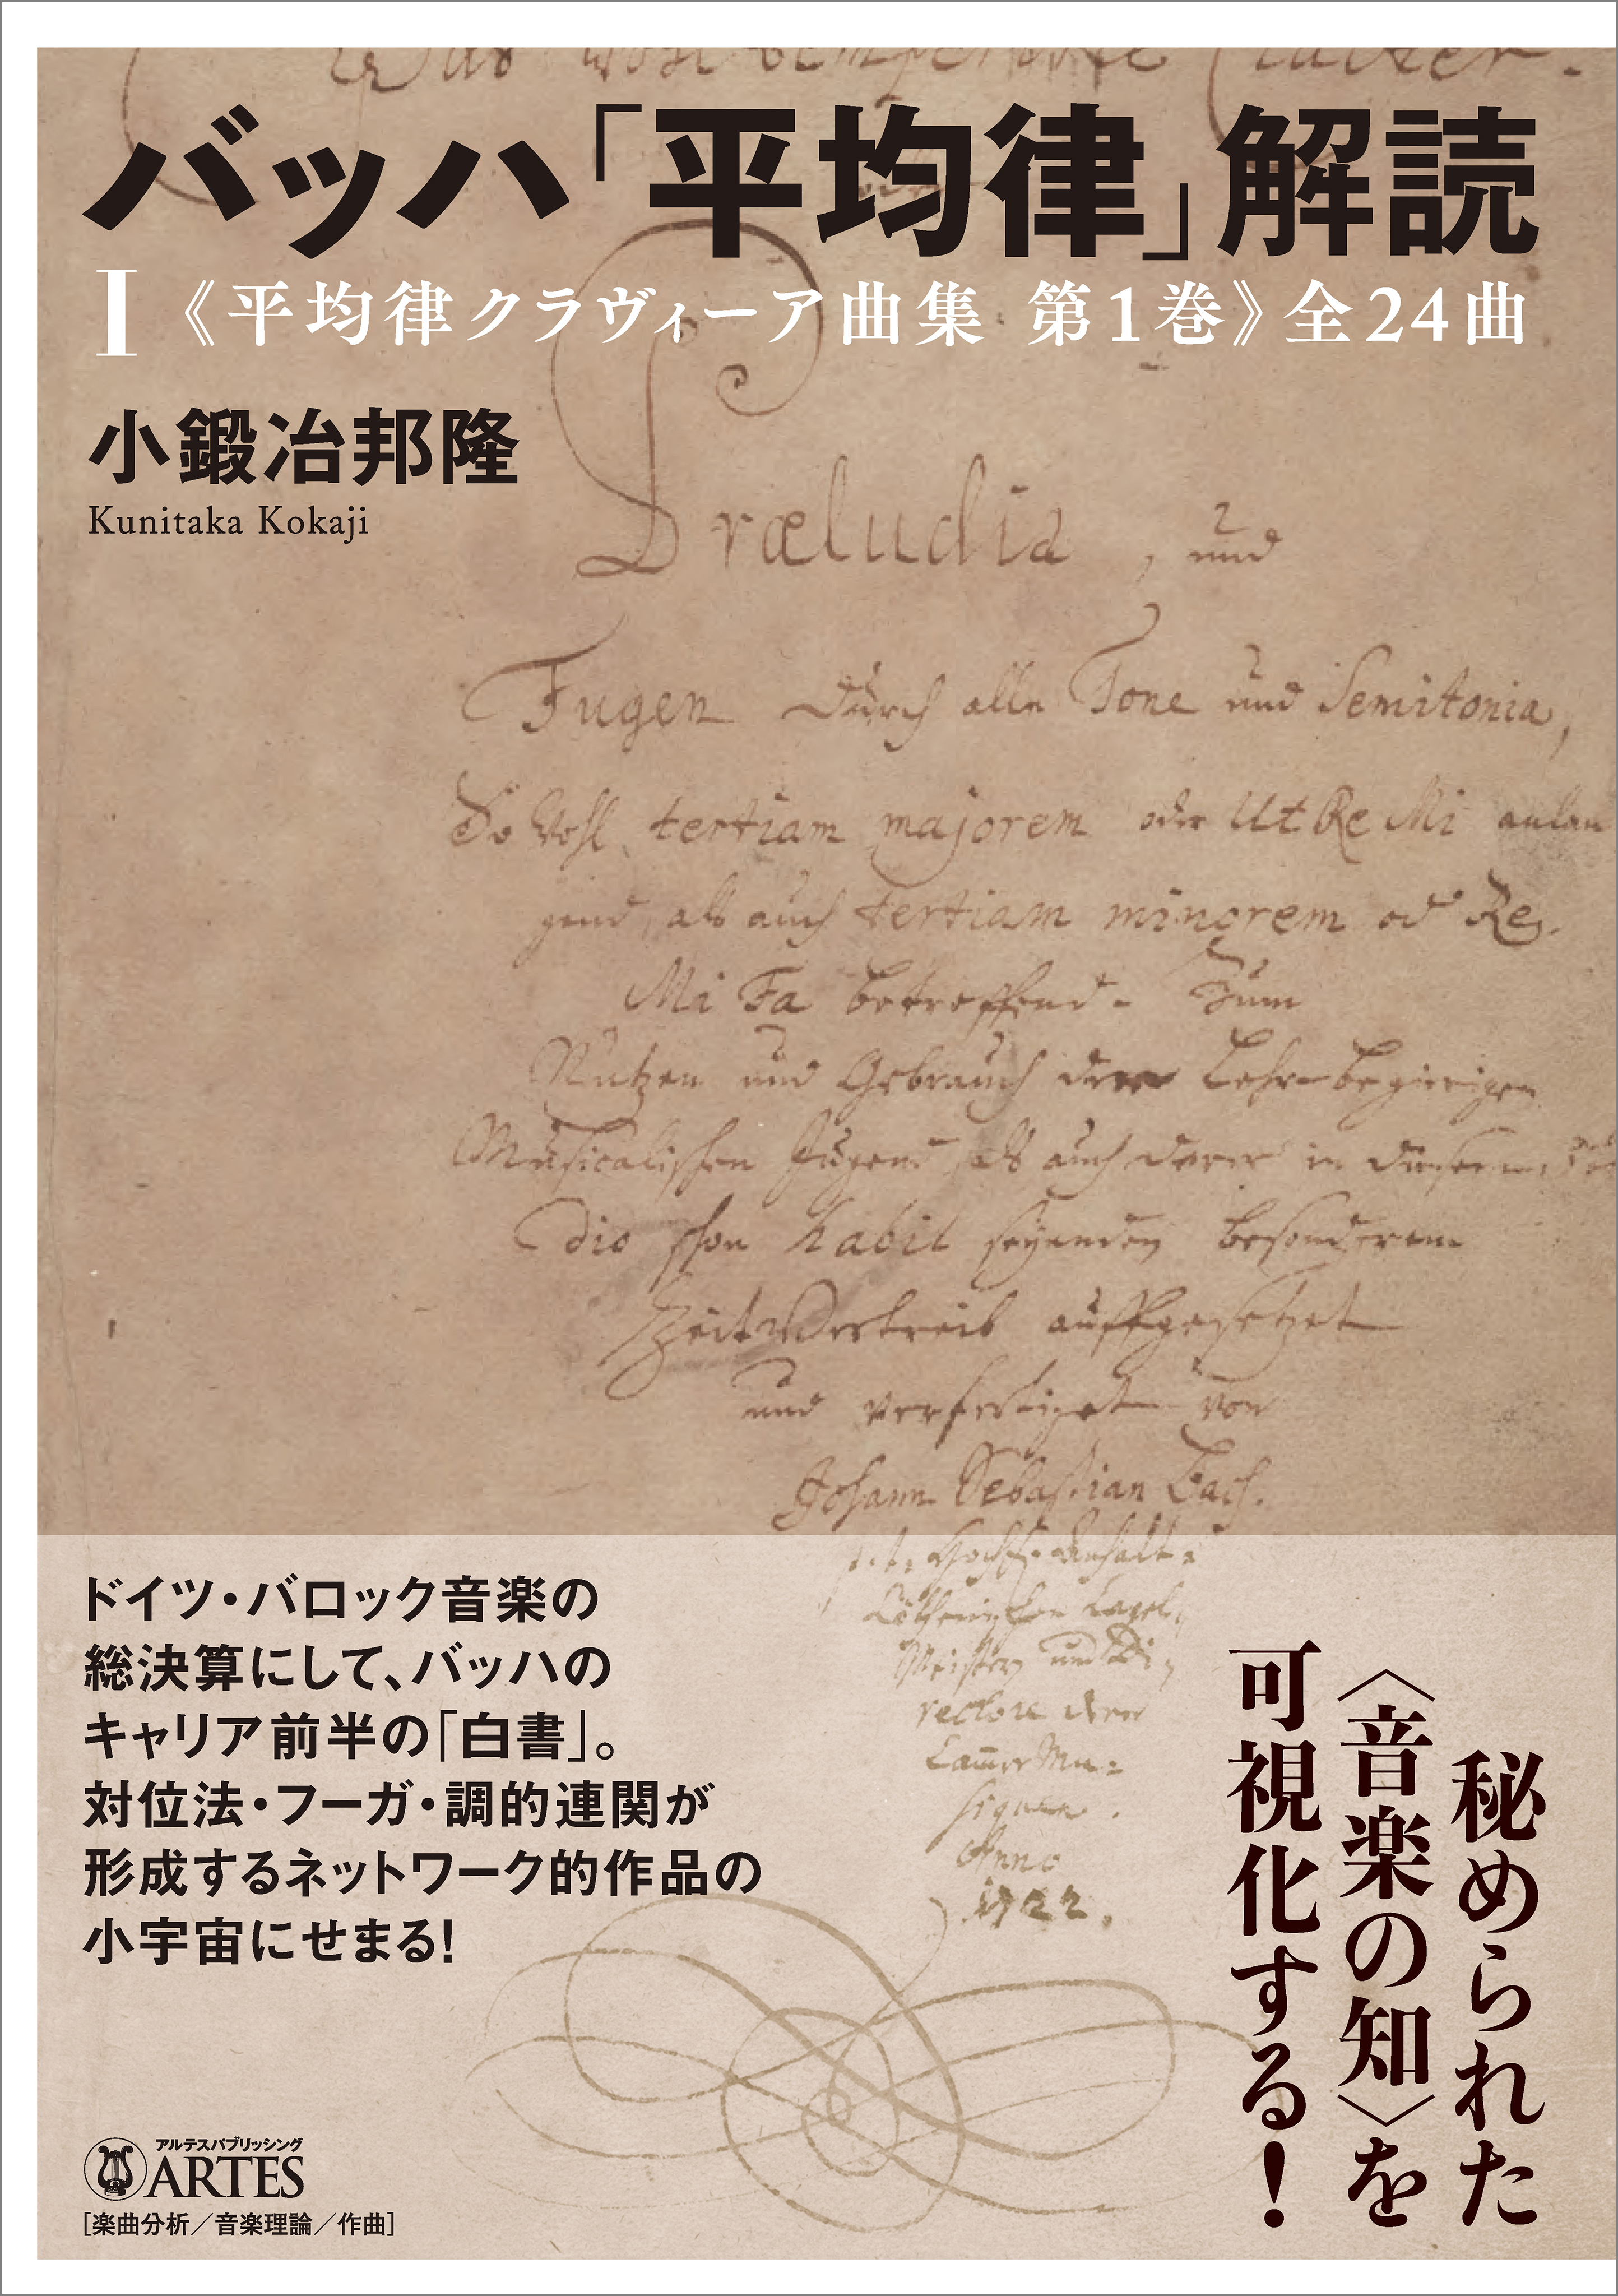 バッハ「平均律」解読
I《平均律クラヴィーア曲集 第1巻》全24曲
小鍛冶邦隆
Kunitaka Kokaji
Præludia, und
Fugen durch alle Tone und Semitonia,
So wohl tertiam majorem oder Ut Re Mi anlan
gend, als auch tertiam minorem od Re
Mi Fa betreffend. Zum
Nutzen und Gebrauch der Lehr-begierigen
Musicalischen Jugend als auch derer in diesem
dio schon habil seyenden besonderem
ZeitVertreib auffgesetzet
und verfertiget von
Johann Sebastian Bach.
Meister und Di
rectore derer
Anno
1722.
ドイツ・バロック音楽の
総決算にして、バッハの
キャリア前半の「白書」。
対位法・フーガ・調的連関が
形成するネットワーク的作品の
小宇宙にせまる!
秘められた
〈音楽の知〉を
可視化する!
アルテスパブリッシング
ARTES
[楽曲分析/音楽理論/作曲]